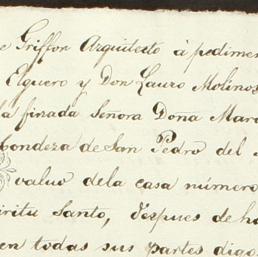 e Griffon Arquitecto á pedimen
Elguero y Don Lauro Molinos
la finada Señora Doña Mar
Condeza de San Pedro del
valuo dela casa número
iritu Santo, despues de ha
en todas sus partes digo